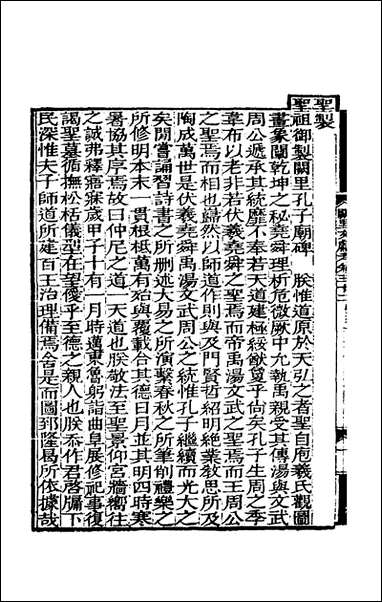 聖製
聖祖御製闕里孔子廟碑　朕惟道原於天弘之者聖自庖羲氏觀圖
畫象闡乾坤之秘堯舜理析危微厥中允執禹親受其傳湯與文武
周公遞承其統靡不奉若天道建極綏猷敻乎尚矣孔子生周之季
韋布以老非若伏羲堯舜之聖焉而帝禹湯文武之聖焉而王周公
之聖焉而相也巋然以師道作則與及門賢哲紹明絶業敎思所及
陶成萬世是伏羲堯舜禹湯文武周公之統惟孔子繼續而光大之
矣間嘗誦習詩書之所刪述大易之所演繫春秋之所筆削禮樂之
所修明本末一貫根柢萬有殆與覆載合其德日月並其明四時寒
暑協其序焉故曰仲尼之道一天道也朕敬法至聖景仰宮牆嚮往
之誠弗釋寤寐歲甲子十有一月時邁東魯躬詣曲阜展修祀事復
謁聖墓循撫松栝儀型在望僾乎至德之親人也朕忝作君啓牖下
民深惟夫子師道所建百王治理備焉舍是而圖郅隆曷所依據哉